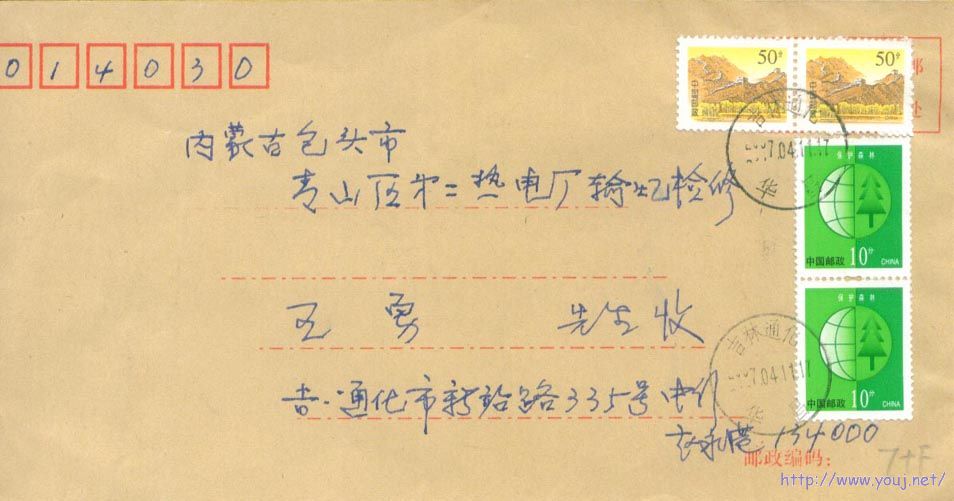 014030
50分
50分
吉林通化
2007.04.11.17
内蒙古包头市
青山区第二热电厂输煤检修
保护森林
中国邮政 10分 CHINA
王勇 先生收
保护森林
吉林通化
2007.04.11.17
中国邮政 10分 CHINA
吉·通化市新站路335号中行
134000
邮政编码:
http://www.youj.net/